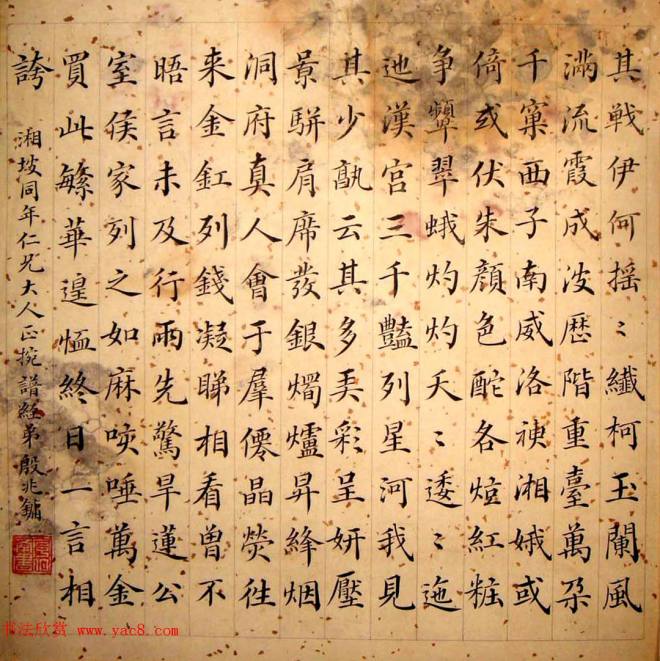 其戰伊何搖〻纖柯玉闌風
滿流霞成波歷階重臺萬朶
千窠西子南威洛神湘娥或
倚或伏朱顏色酡各炫紅粧
爭顰翠蛾灼灼夭〻逶〻迤
迆漢宮三千豔列星河我見
其少孰云其多弄彩呈妍壓
景駢肩席發銀燭爐昇絳烟
洞府真人會于羣僊晶熒往
來金釭列錢凝睇相看曾不
晤言未及行雨先驚旱蓮公
室侯家列之如麻咳唾萬金
買此繁華遑恤終日一言相
誇
湘坡同年仁兄大人正捥 譜經弟殷兆鏞
书法欣赏 www.yac8.com